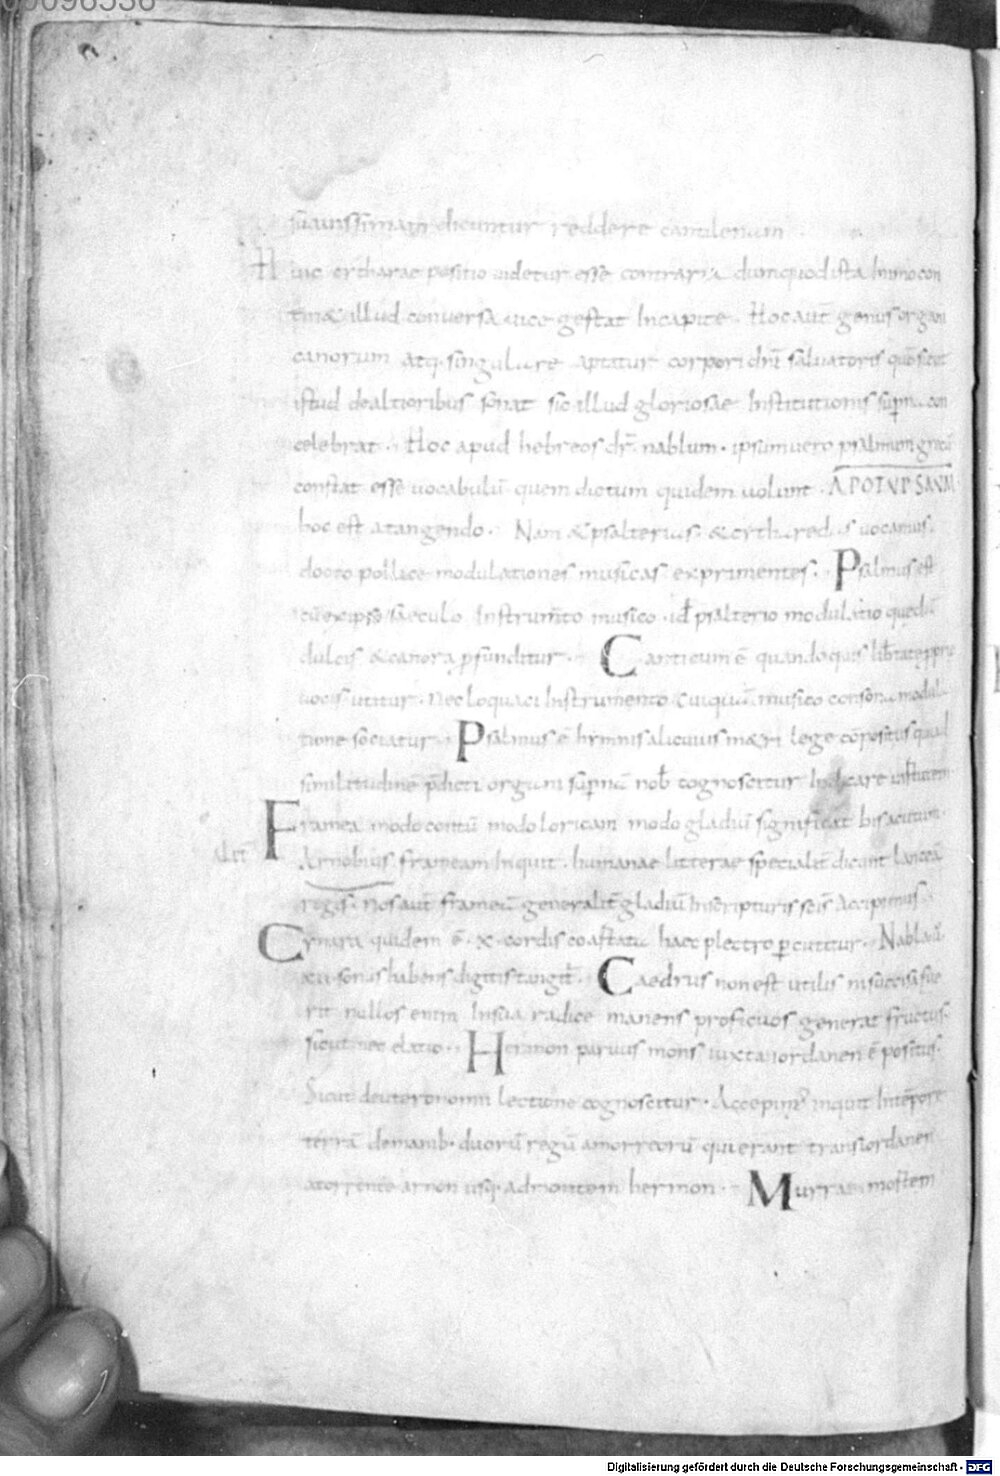 00096536
suauissimam dicuntur reddere cantilenam
Huic citharae positio uidetur esse contraria dumquod ista Inimo con
tin& illud conuersa uice gestat Incapite. Hoc aut̄ genus organi
canorum atq. singulare aptatur corpori dn̄i saluatoris
istud dealtioribus sonat sic illud gloriosae Institutionis sup̄na con
celebrat. Hoc apud hebreos dr̄ nablum. ipsum uero psalmum
constat esse uocabulū quem dictum quidem uolunt
hoc est atangendo. Nam &psalterius &cytharedus uocamus.
docto pollice modulationes musicas exprimentes. Psalmus est
cū exipso saeculo Instrum̄to musico id psalterio modulatio quedā
dulcis &canora p̱funditur. Canticum ē quando quis
uocis utitur. nec loquaci Instrumento cuiquā musico consona modula
tione sociatur. Psalmus ē hymnis alicuius m&ri lege cōpositus
similitudinē p̄dicti organi sup̄nā nob̄ cognoscitur Indicare
Framea modo contū modo loricam modo gladiū significat bisacutum.
Arnobius frameam Inquit. humanae litterae specialit̄ dicunt lanceā
regis. nos aut̄ frameā generalit̄ gladiū Inscripturis sc̄is Accipimus.
Cynara quidem ē .x. cordis coaptata haec plectro p̱cutitur. Nabla
xii. sonus habens digitis tangit̄. Caedrus non est utilis nisi succisa fue
rit nullos enim Insua radice manens proficuos generat fructus.
sicut nec elatio. Hermon paruus mons iuxta iordanen ē positus.
Sicut deuteronomii lectione cognoscitur. Accepim inquit Intēpore
terrā demanib. duorū regū amorreorū qui erant transiordanen
atorrente arnon usq. admontem hermon. Murra mostem
Digitalisierung gefördert durch die Deutsche Forschungsgemeinschaft - DFG